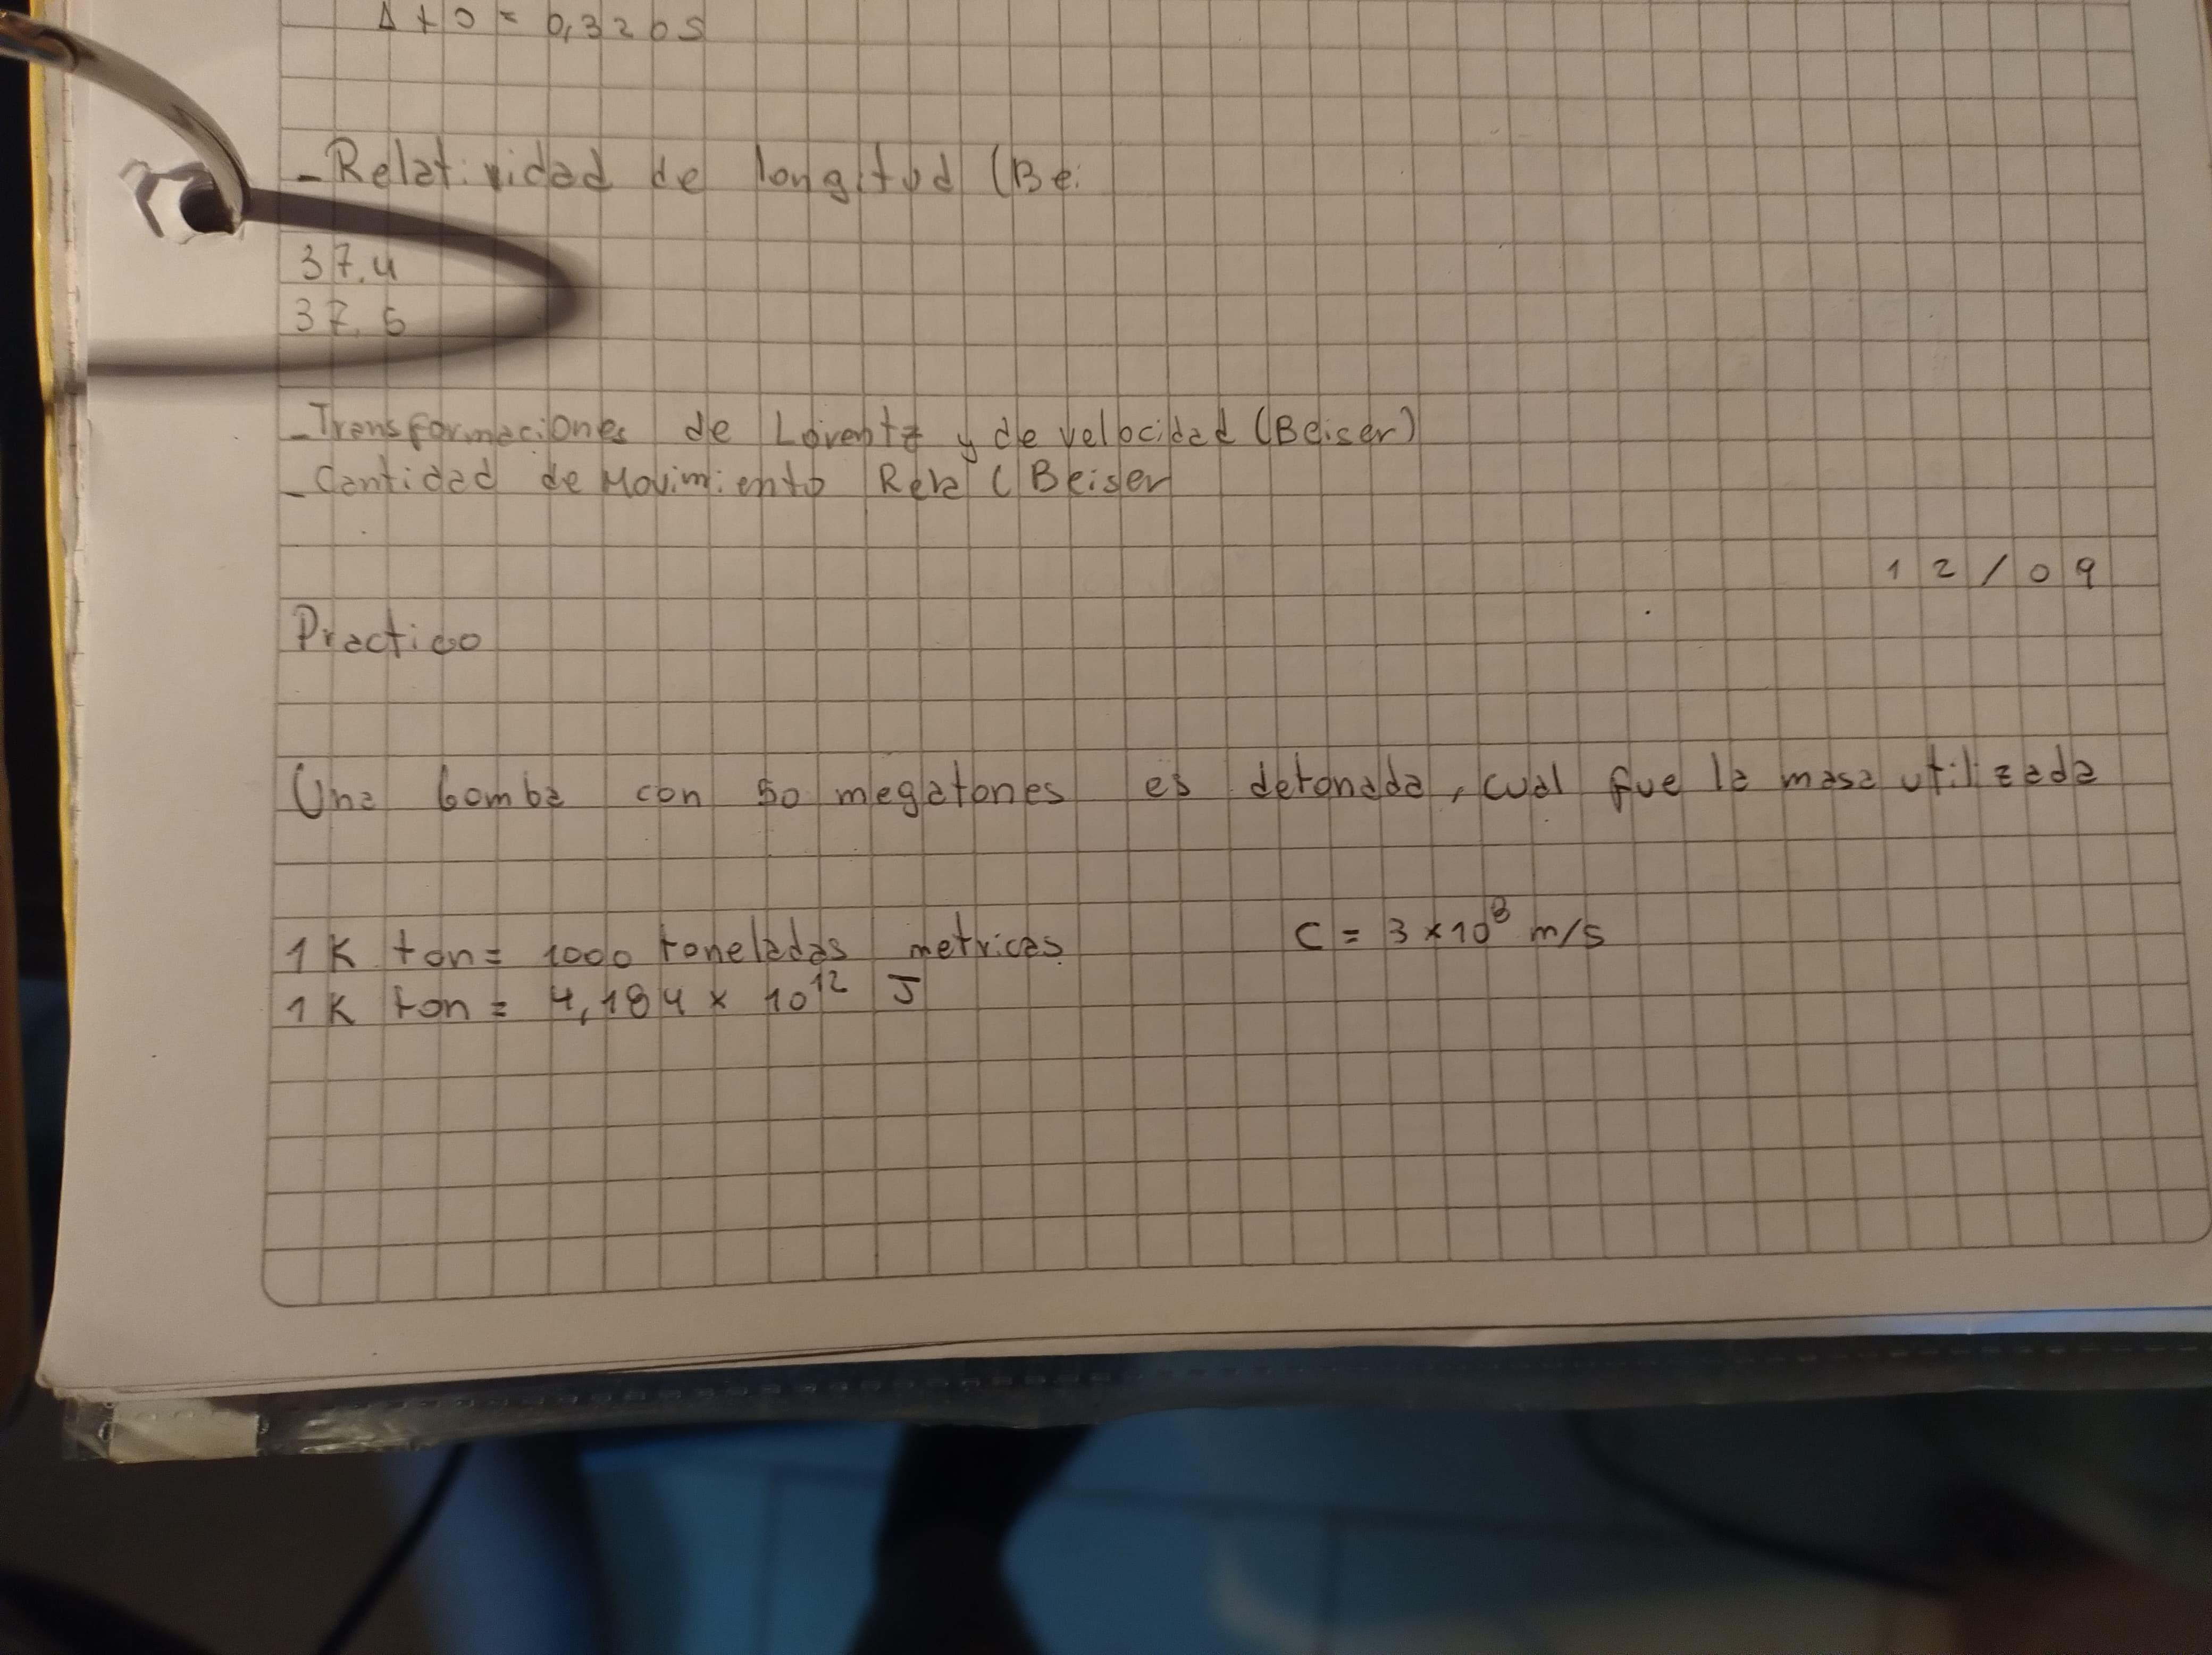 Δt0 = 0,326s
- Relatividad de longitud (Be.
37.4
37.5
- Transformaciones de Lorentz y de velocidad (Beiser)
- Cantidad de Movimiento Rela (Beiser
12/09
Practico
Una bomba con 50 megatones es detonada, cual fue la masa utilizada
1K ton = 1000 toneladas metricas.
C = 3×10⁸ m/s
1K ton = 4,184 × 10¹² J